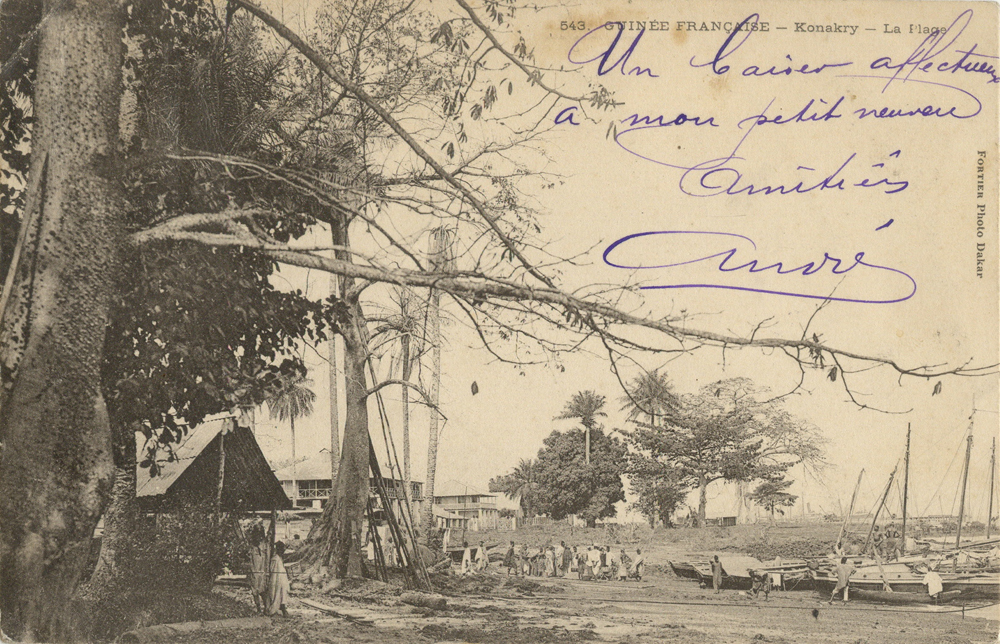 543. GUINÉE FRANÇAISE – Konakry – La Plage
Un baiser affectueux
a mon petit neuveu
Amitiés
André
FORTIER Photo Dakar